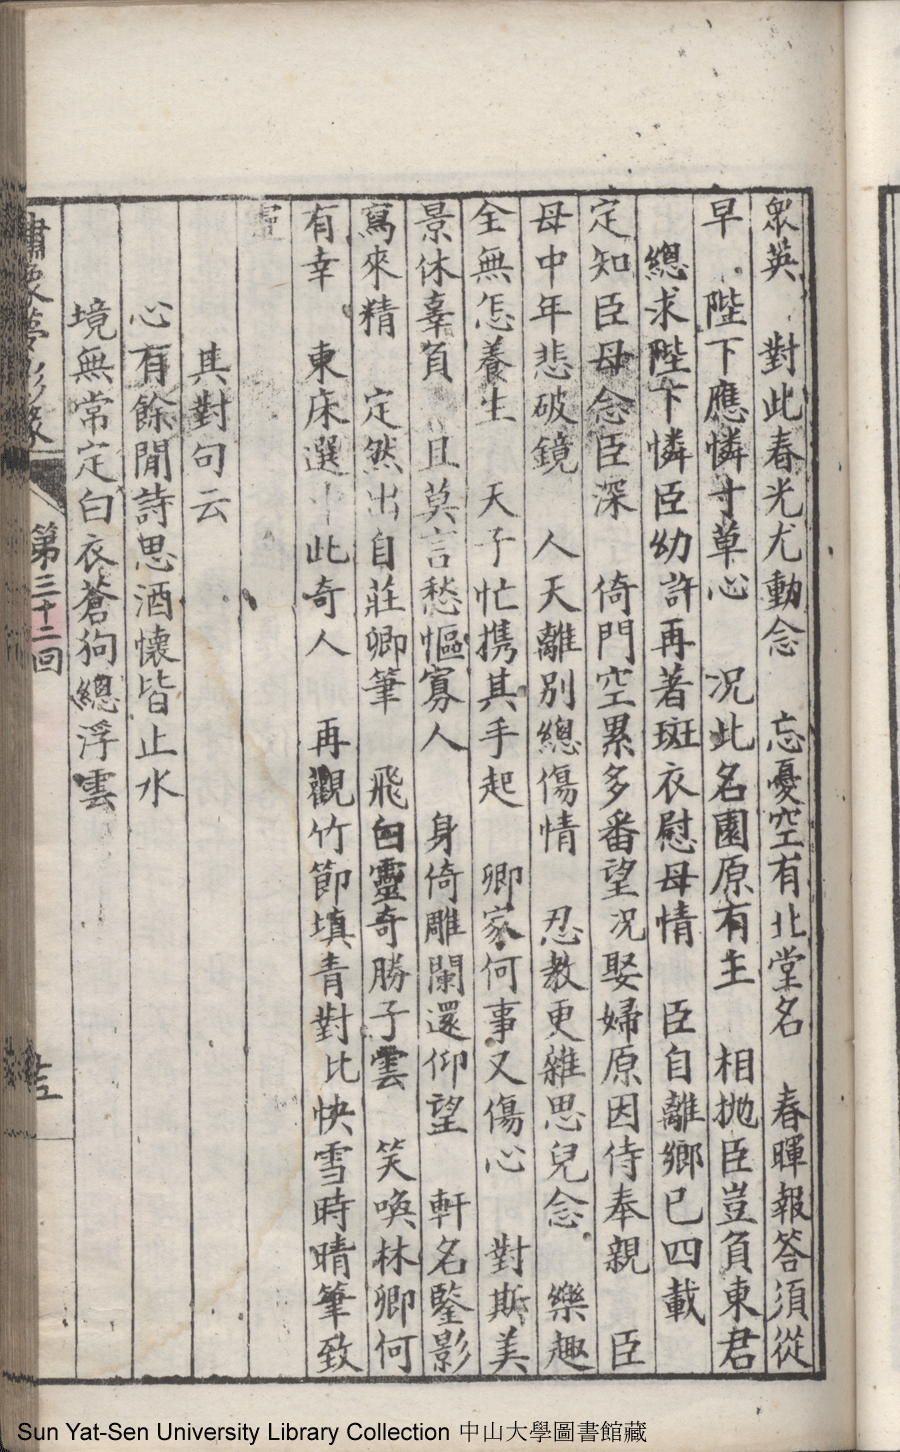 眾英　對此春光尤動念　忘憂空有北堂名　春暉報答須從
早　陛下應憐寸草心　況此名園原有主　相拋臣豈負東君
總求陛下憐臣幼許再著斑衣慰母情　臣自離鄉已四載
定知臣母念臣深　倚門空累多番望況娶婦原因侍奉親　臣
母中年悲破鏡　人天離別總傷情　忍教更雜思兒念　樂趣
全無怎養生　天子忙携其手起　卿家何事又傷心　對斯美
景休辜負　且莫言愁慪寡人　身倚雕闌還仰望　軒名鑒影
寫來精　定然出自莊卿筆　飛白靈奇勝子雲　笑喚林卿何
有幸　東床選中此奇人　再觀竹節填青對比快雪時晴筆致
靈
其對句云
心有餘閒詩思酒懷皆止水
境無常定白衣蒼狗總浮雲
繡像夢影緣
第三十二回
Sun Yat-Sen University Library Collection 中山大學圖書館藏